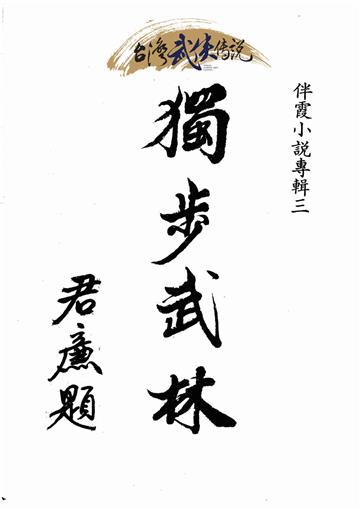 台灣武侠传说
伴霞小說專輯三
獨步武林
君廉題